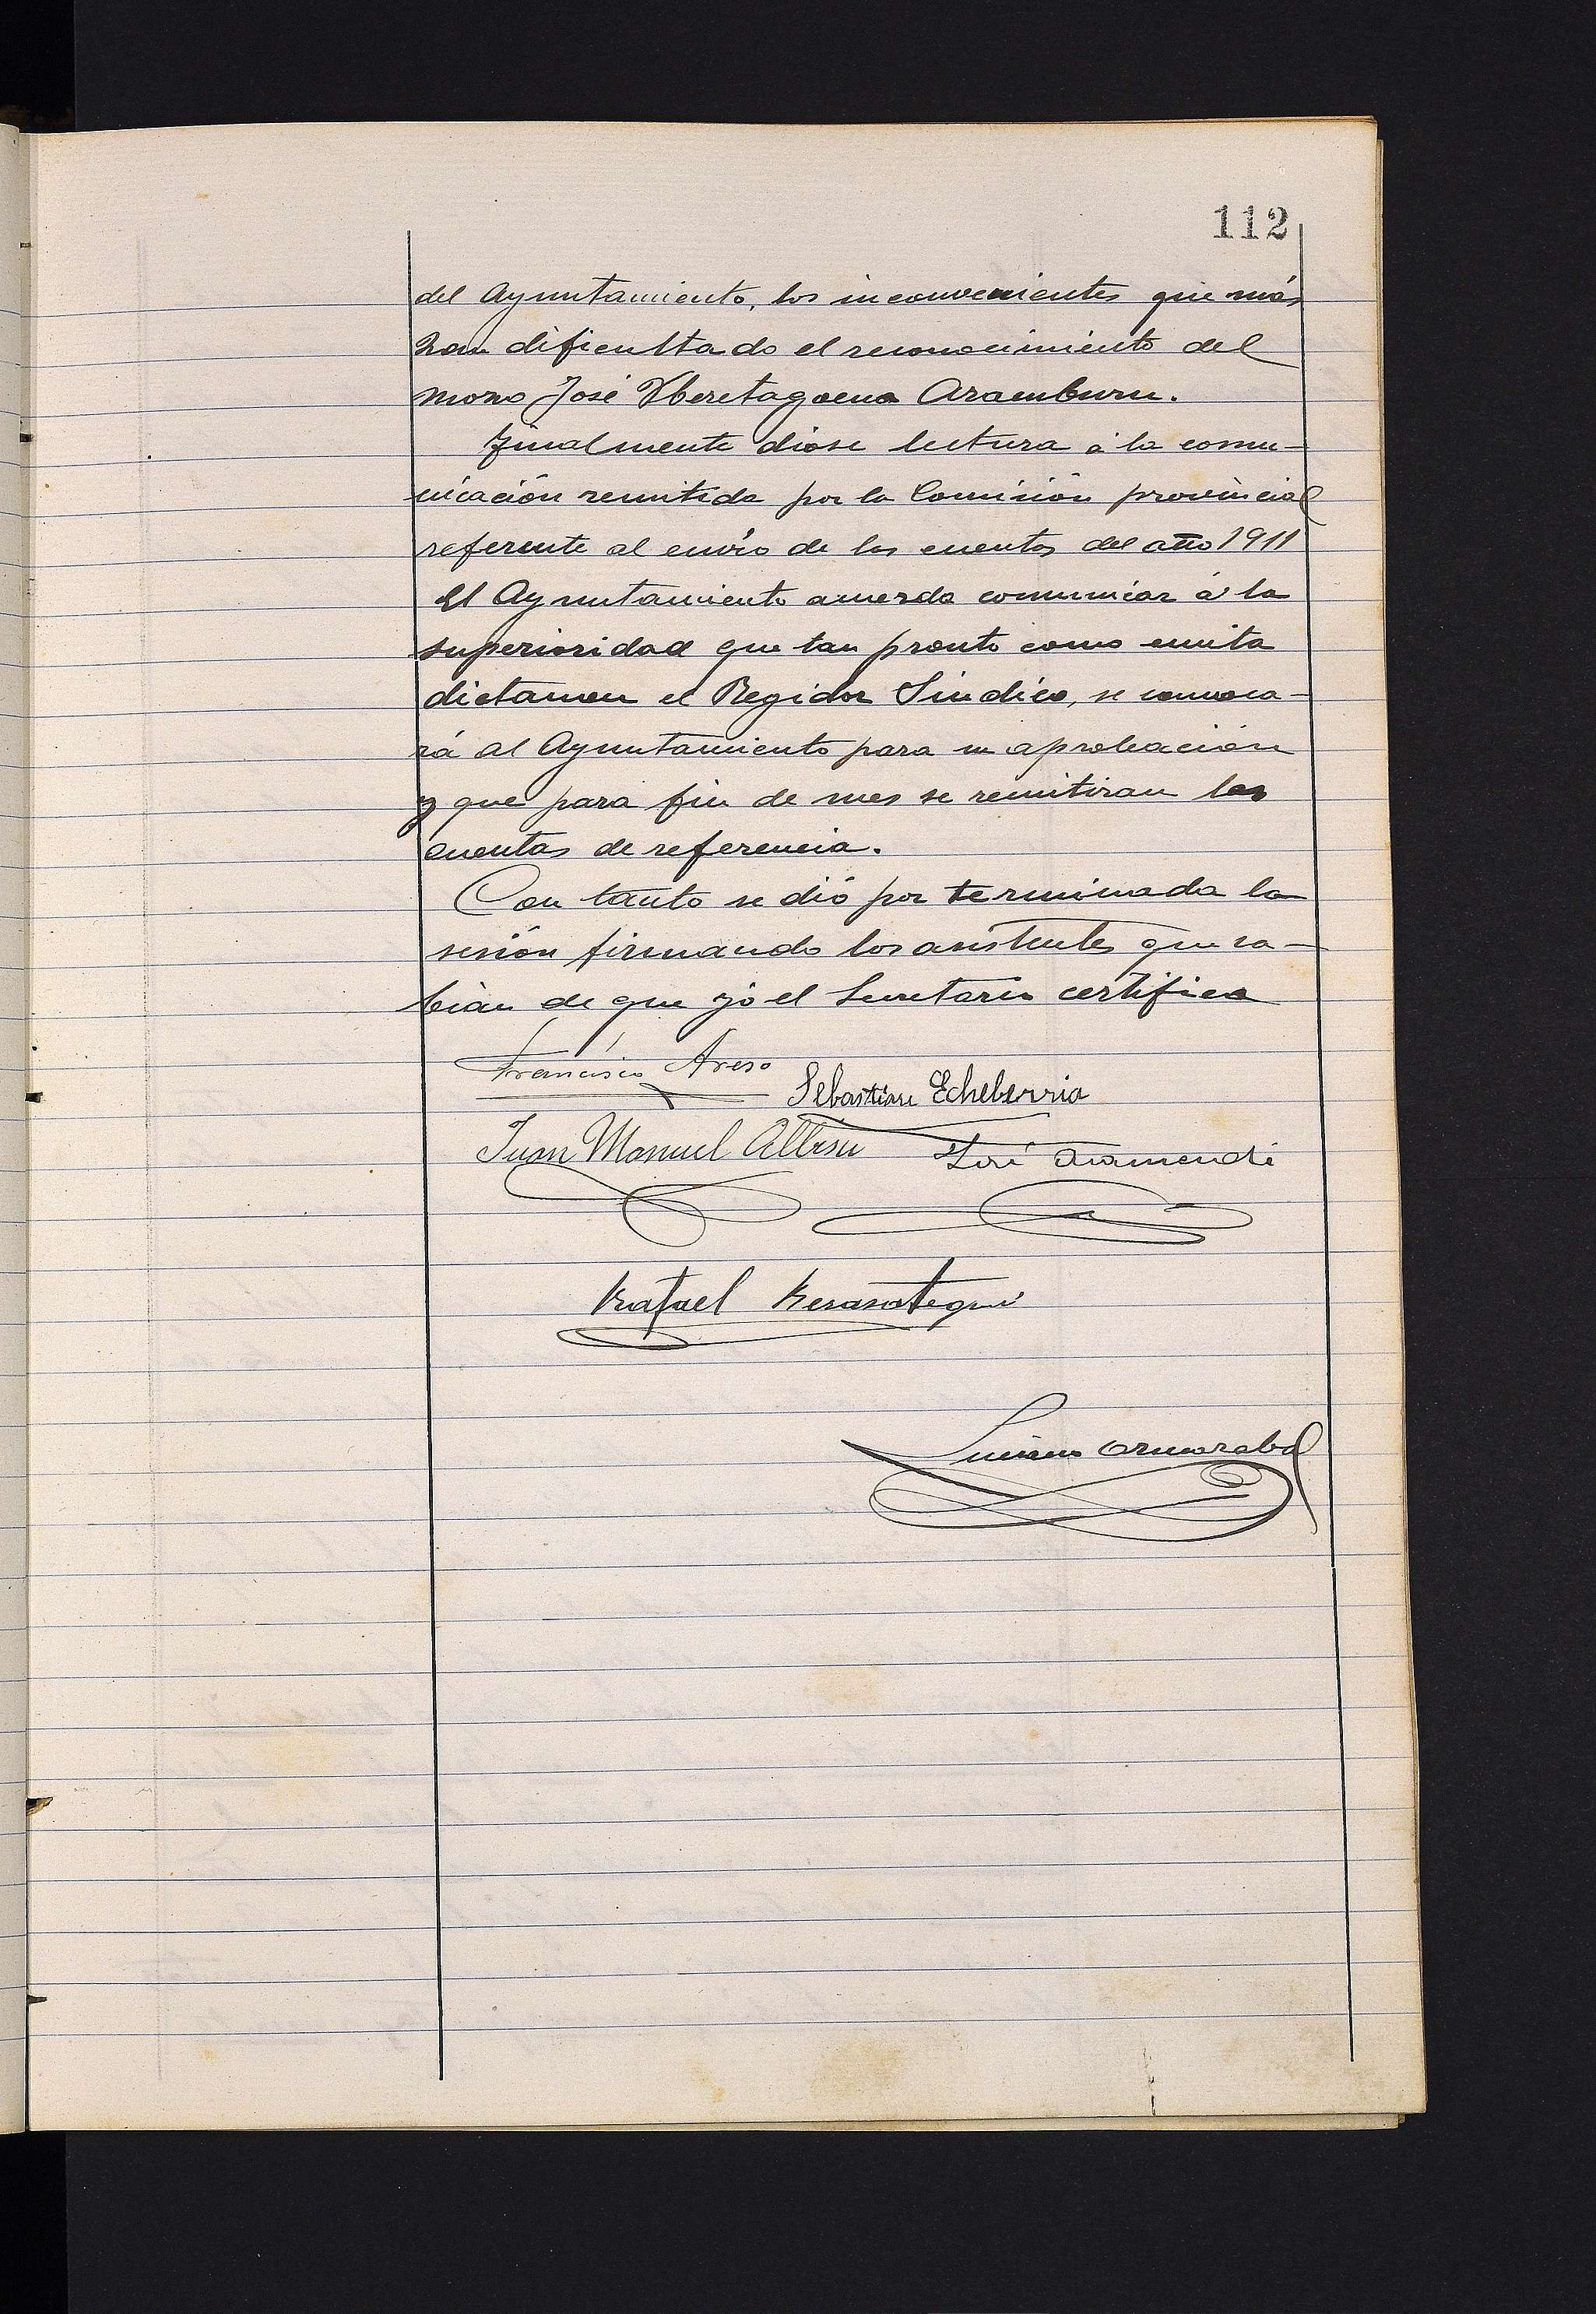 112
del Ayuntamiento, los inconvenientes que más
han dificultado el reconocimiento del
mozo José Yberetagoena Aramburu.
Finalmente dióse lectura á la comu-
nicación remitida por la Comisión provincial
referente al envío de las cuentas del año 1911
El Ayuntamiento acuerda comunicar á la
superioridad que tan pronto como emita
dictamen el Regidor Síndico, se convoca-
rá al Ayuntamiento para su aprobación
y que para fin de mes se remitiran las
cuentas de referencia.
Con tanto se dió por terminada la
sesión firmando los asistentes que sa-
bían de que yo el Secretario certifico
Francisco Areso
Sebastian Echeberria
Juan Manuel Albisu José Aramendi
Rafael Berasategui
Luciano Ormazabal